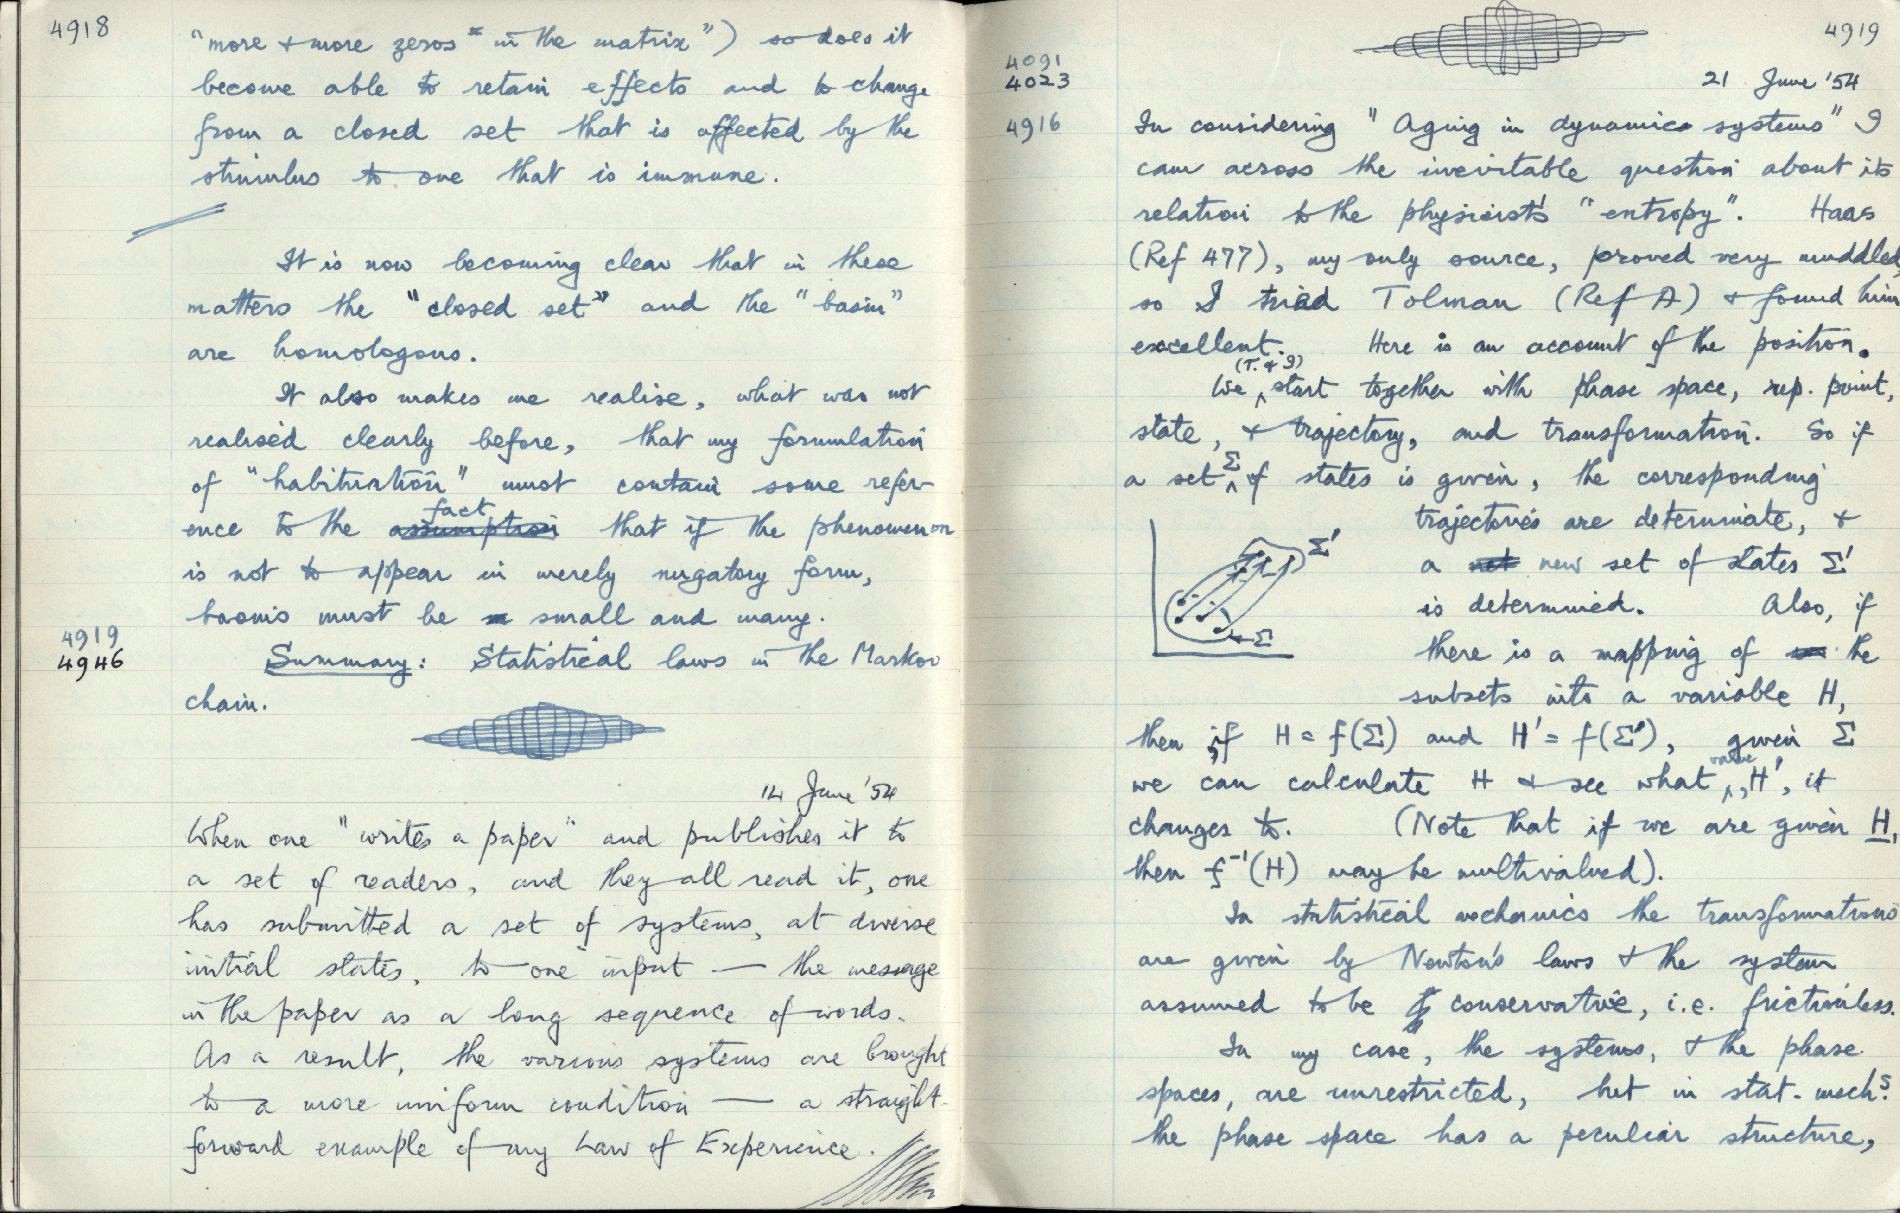 4918
"more & more zeros" in the matrix") so does it
become able to retain effects and to change
from a closed set that is affected by the
stimulus to one that is immune.
It is now becoming clear that in these
matters the "closed set" and the "basin"
are homologous.
It also makes me realise, what was not
realised clearly before, that my formulation
of "habituation" must contain some refer-
ence to the assumption fact that if the phenomenon
is not to appear in merely nugatory form,
basins must be small and many.
4919
4946
Summary: Statistical laws in the Markov
chain.
14 June '54
When one "writes a paper" and publishes it to
a set of readers, and they all read it, one
has submitted a set of systems, at diverse
initial states, to one input — the message
in the paper as a long sequence of words.
As a result, the various systems are brought
to a more uniform condition — a straight-
forward example of my Law of Experience.
4919
4091
4023
21 June '54
4916
In considering "Aging in dynamic systems" I
came across the inevitable question about its
relation to the physicist's "entropy". Haas
(Ref 477), my only source, proved very muddled
so I tried Tolman (Ref A) & found him
excellent. Here is an account of the position.
We (T. & I) start together with phase space, rep. point,
state, & trajectory, and transformation. So if
a set Σ of states is given, the corresponding
trajectories are determinate, &
a new set of states Σ'
is determined. Also, if
there is a mapping of the
subsets into a variable H,
Σ'
Σ
then, if H = f(Σ) and H' = f(Σ'), given Σ
we can calculate H & see what value, H', it
changes to. (Note that if we are given H,
then f⁻¹(H) may be multivalued).
In statistical mechanics the transformations
are given by Newton's laws & the system
assumed to be conservative, i.e. frictionless.
In my case, the systems, & the phase
spaces, are unrestricted, but in stat. mechs.
the phase space has a peculiar structure,